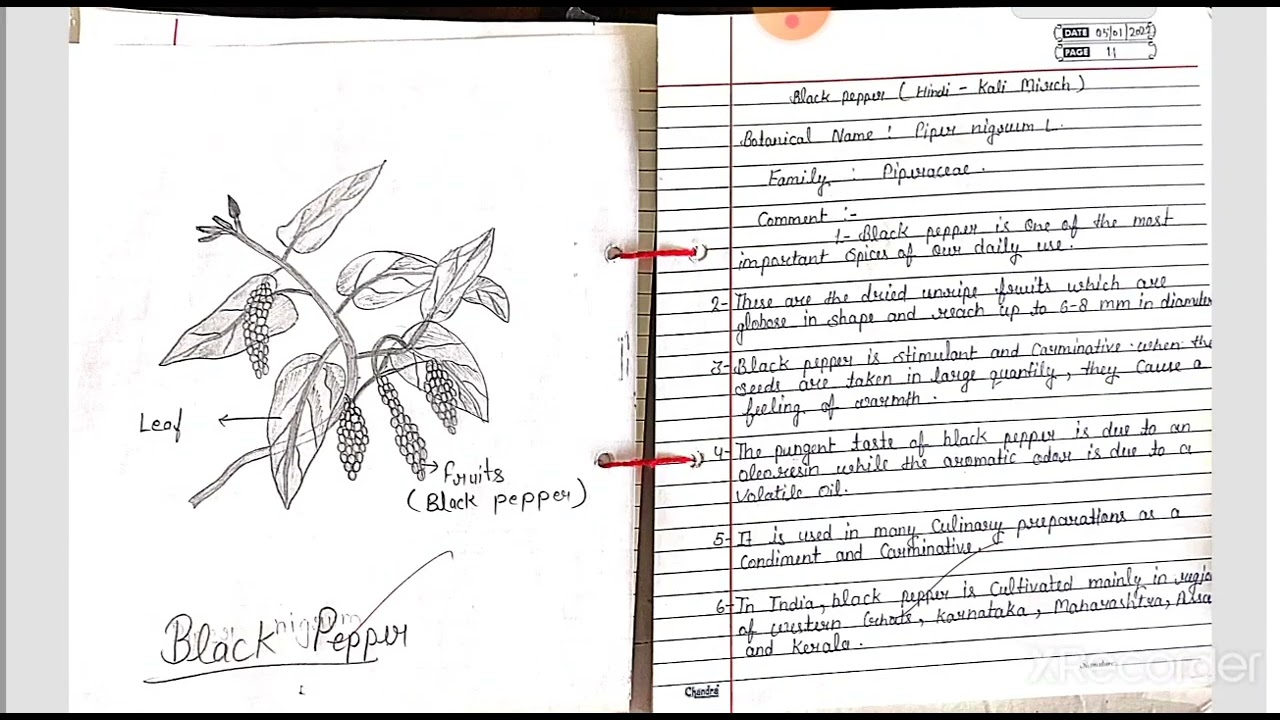 Leaf
Fruits
(Black pepper)
Black Pepper
DATE 05/01/202
PAGE 11
Black pepper (Hindi - Kali Mirch)
Botanical Name : Piper nigrum L.
Family : Piperaceae.
Comment :-
1- Black pepper is one of the most
important spices of our daily use.
2- These are the dried unripe fruits which are
globose in shape and reach up to 6-8 mm in diameter
3- Black pepper is stimulant and Carminative. when the
seeds are taken in large quantity, they cause a
feeling of warmth.
4- The pungent taste of black pepper is due to an
oleoresin while the aromatic odor is due to a
volatile oil.
5- It is used in many Culinary preparations as a
Condiment and Carminative.
6- In India, black pepper is cultivated mainly in regio
of western Ghats, Karnataka, Maharashtra, Assa
and Kerala.
Chandra
XRecorder